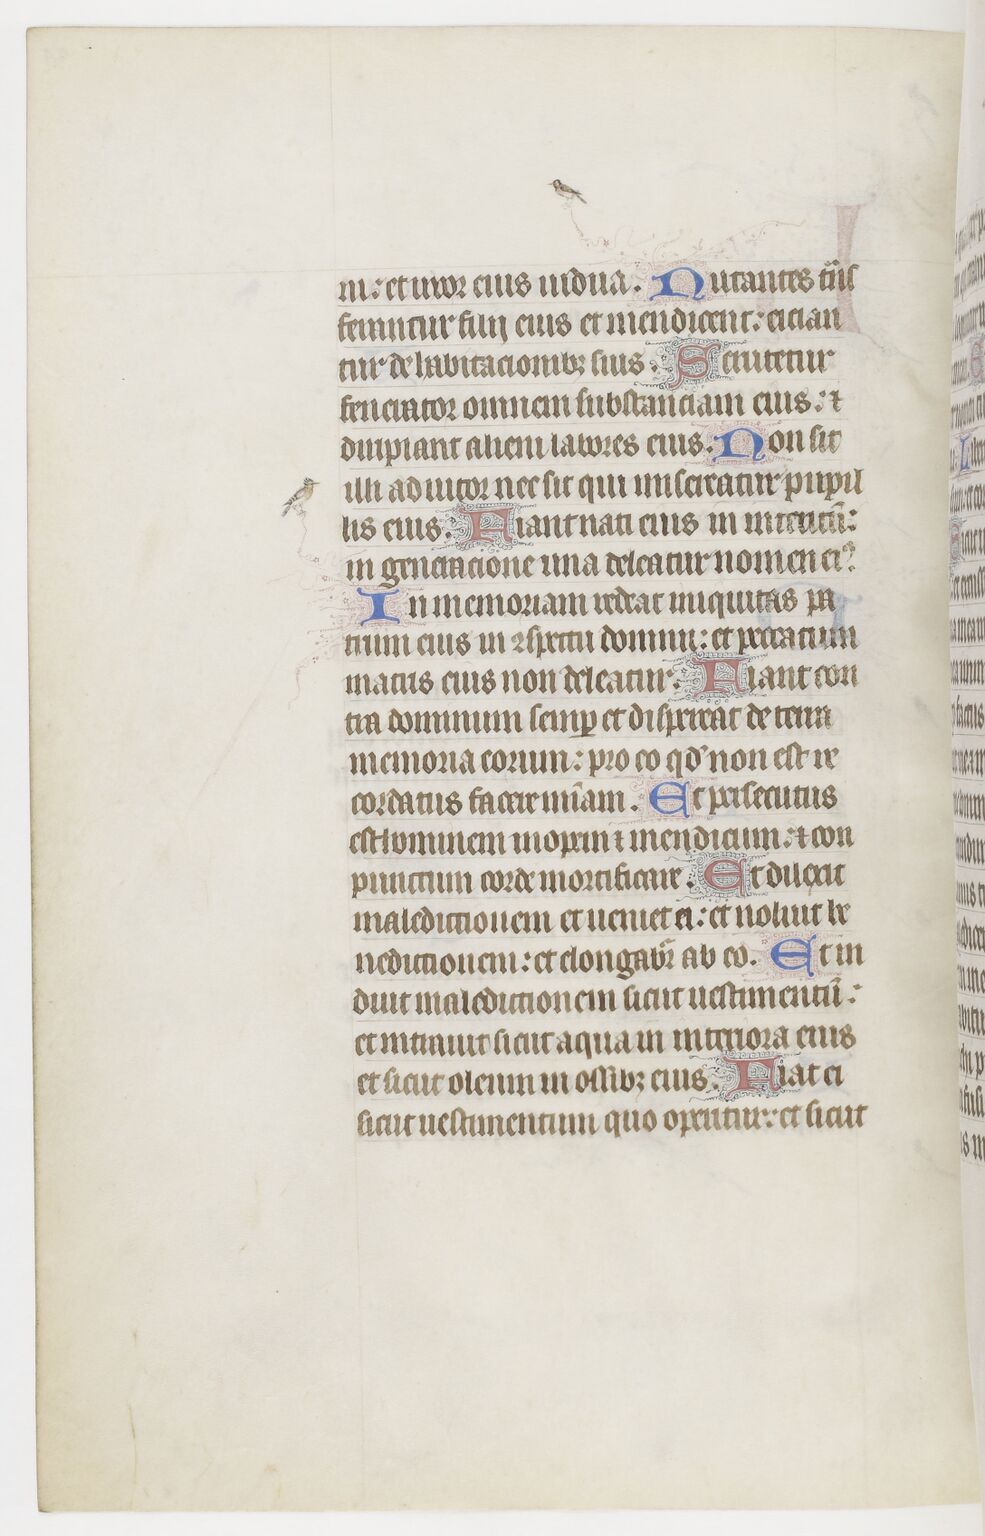 ni: et uxor eius uidua. Nutantes tͣns
ferantur filij eius et mendicent: eician
tur de habitacionibꝫ suis. Scrutetur
fenerator omnem substanciam eius: ⁊
diripiant alieni labores eius. Non sit
illi adiutor nec sit qui misereatur pupil
lis eius. Fiant nati eius in interitū:
in generacione una deleatur nomen eiꝰ.
In memoriam redeat iniquitas pa
trum eius in ꝯspectu domini: et peccatum
matris eius non deleatur. Fiant con
tra dominum semꝑ et dispereat de terra
memoria eorum: pro eo qd̓ non est re
cordatus facere mīam. Et persecutus
est hominem inopem ⁊ mendicum: ⁊ con
punctum corde mortificare. Et dilexit
maledictionem et ueniet ei: et noluit be
nedictionem: et elongabr̄ ab eo. Et in
duit maledictionem sicut uestimentū:
et intrauit sicut aqua in interiora eius
et sicut oleum in ossibꝫ eius. Fiat ei
sicut uestimentum quo operitur: et sicut